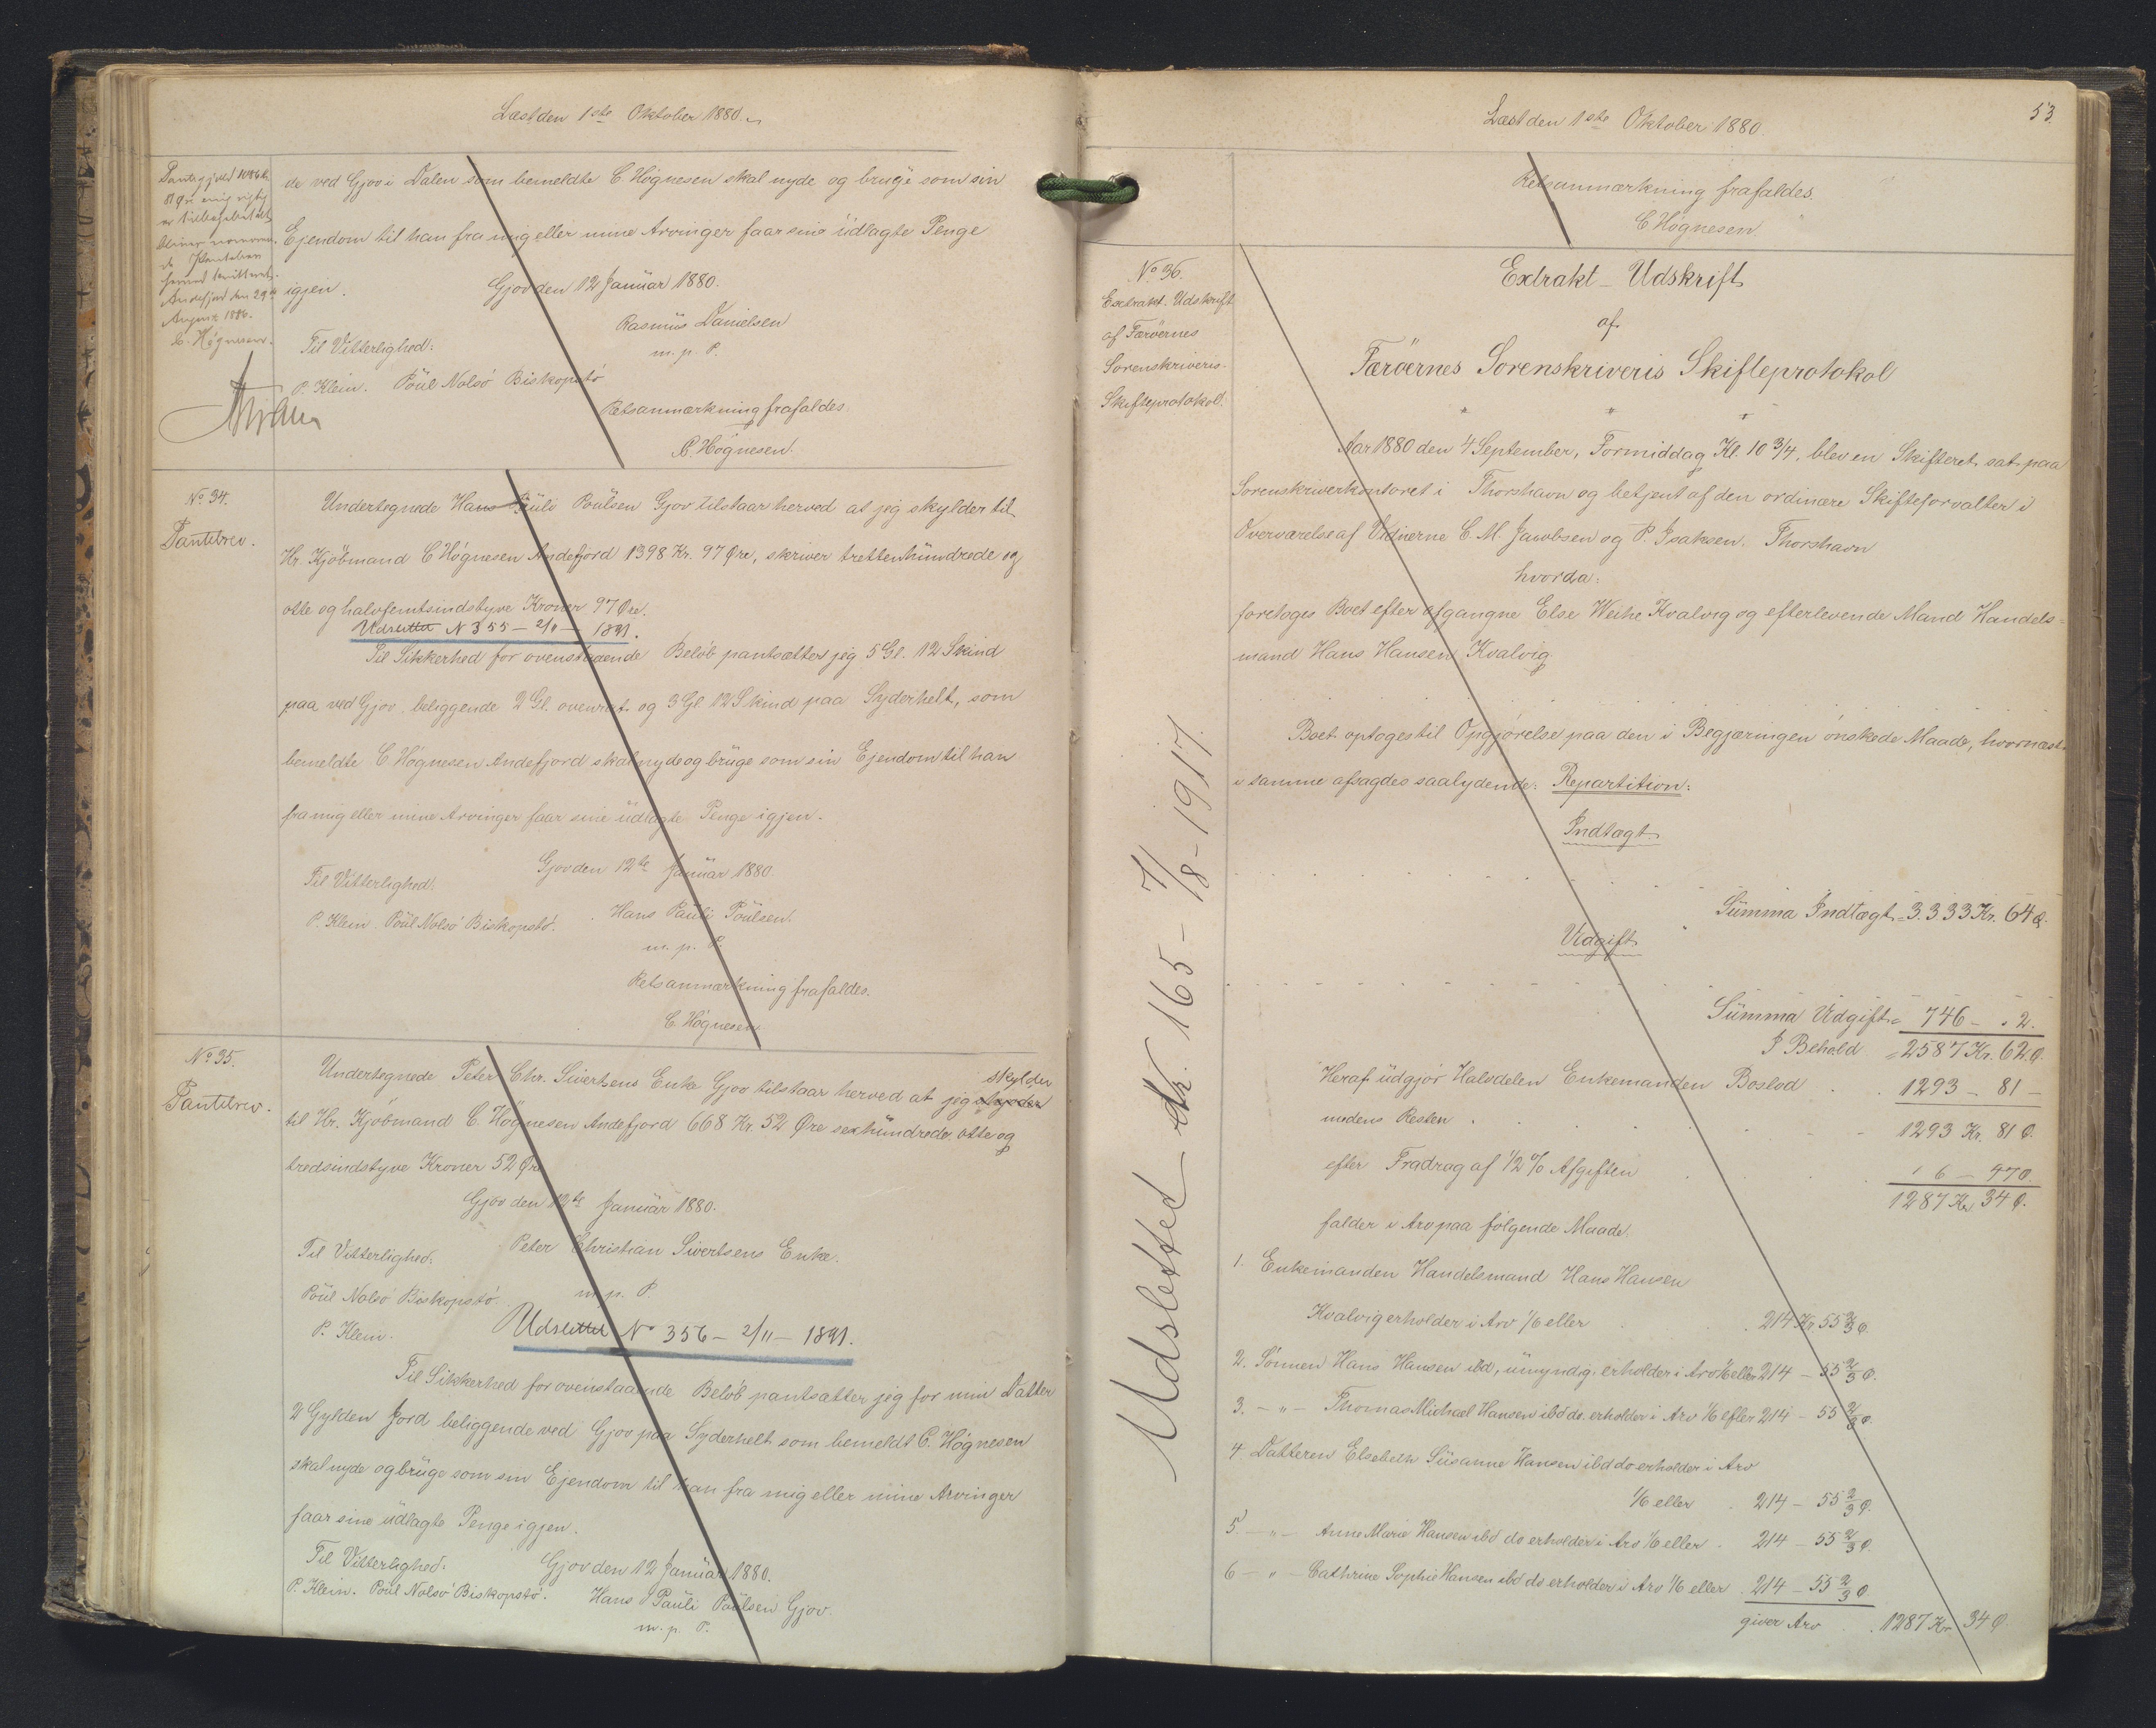 Læst den 1ste Oktober 1880.
de ved Gjov i Dalen som bemeldte C. Høgnesen skal nyde og bruge som sin
Ejendom til han fra mig eller mine Arvinger faar sine üdlagte Penge
igjen.
Gjov den 12 Januar 1880.
Rasmüs Danielsen
m. p. P.
Til Vitterlighed:
P. Klein. Poül Nolsø Biskopstø
Retsanmærkning frafaldes.
C. Høgnesen.
er tilbagebetalt
August 1886.
C. Høgnesen.
No 34.
Pantebrev.
Undertegnede Hans Paüli Poülsen Gjov tilstaar herved at jeg skylder til
Hr. Kjøbmand C Høgnesen Andefjord 1398 Kr. 97 Øre, skriver trettenhündrede og
otte og halvfemtsindstyve Kroner 97 Øre.
Udslettet N 355 – 2/11 – 1891.
Til Sikkerhed for ovenstaaende Beløb pantsætter jeg 5 Gl. 12 Skind
paa ved Gjov beliggende 2 Gl. ovenrat og 3 Gl 12 Skind paa Syderhelt, som
bemeldte C. Høgnesen Andefjord skal nyde og brüge som sin Ejendom til han
fra mig eller mine Arvinger faar sine üdlagte Penge igjen.
Gjov den 12te Januar 1880.
Til Vitterlighed.
Hans Paüli Poülsen.
P. Klein. Poül Nolsø Biskopstø.
m. p. P.
Retsanmærkning frafaldes.
C. Høgnesen
No 35.
Pantebrev.
Undertegnede Peter Chr. Sivertsens Enke Gjov tilstaar herved at jeg skylder
til Hr. Kjøbmand C. Høgnesen Andefjord 668 Kr. 52 Øre sexhündrede otte og
tredsindstyve Kroner 52 Øre
Gjov den 12te Januar 1880.
Til Vitterlighed.
Peter Christian Sivertsens Enke.
Poül Nolsø Biskopstø.
m. p. P.
P. Klein.
Udslettet No 356 – 2/11 – 1891.
Til Sikkerhed for ovenstaaende Beløb pantsætter jeg for min Datter
2 Gylden Jord beliggende ved Gjov paa Syderhelt som bemeldt C. Høgnesen
skal nyde og brüge som sin Ejendom til han fra mig eller mine Arvinger
faar sine üdlagte Penge igjen.
Til Vitterlighed.
Gjov den 12 Januar 1880.
P. Klein. Poül Nolsø Biskopstø.
Hans Paüli Poülsen Gjov.
m. p. P.
Læst den 1ste Oktober 1880.
53.
Retsanmærkning frafaldes.
C Høgnesen
No 36.
Extrakt. Udskrift
af Færøernes
Sorenskriveris
Skifteprotokol.
Extrakt – Udskrift
af
Færøernes Sorenskriveris Skifteprotokol
Aar 1880 den 4 September, Formiddag Kl. 10 3/4, blev en Skifteret sat paa
Sorenskriverkontoret i Thorshavn og betjent af den ordinære Skifteforvalter i
Overværelse af Vidnerne C. M. Jacobsen og P. Isaksen. Thorshavn
hvorda:
foretoges Boet efter afgangne Else Weihe Kvalvig og efterlevende Mand Handels=
mand Hans Hansen Kvalvig
Boet optoges til Opgjørelse paa den i Begjæringen ønskede Maade, hvornæst
i samme afsagdes saalydende: Repartition:
Indtægt
Summa Indtægt = 3.333 Kr. 64 Ø.
Udgift
Summa Udgift = 746 – . 2.
I Behold = 2587 Kr. 62 Ø.
Heraf üdgjør Halvdelen Enkemanden Boslod . 1293 – 81 –
medens Resten . 1293 Kr. 81 Ø.
efter Fradrag af 1/2 % Afgiften 6 – 47 Ø.
1287 Kr 34 Ø.
falder i Arv paa følgende Maade.
1. Enkemanden Handelsmand Hans Hansen
Kvalvig erholder i Arv 1/6 eller . 214 Kr. 55 2/3 Ø.
2. Sønnen Hans Hansen ibd, ümyndig, erholder i Arv 1/6 eller 214 – 55 2/3 Ø.
3. – „ – Thomas Michael Hansen ibd do. erholder i Arv 1/6 eller 214 – 55 2/3 Ø.
4 Datteren Elsebeth Süsanne Hansen ibd do erholder i Arv
1/6 eller . 214 – 55 2/3 Ø.
5. – „ – Anne Marie Hansen ibd do erholder i Arv 1/6 eller . 214 – 55 2/3 Ø.
6 – „ – Cathrine Sophie Hansen ibd do erholder i Arv 1/6 eller . 214 – 55 2/3 Ø
giver Arv . 1287 Kr 34 Ø.
Udslettet Nr. 165 – 7/8 – 1917.